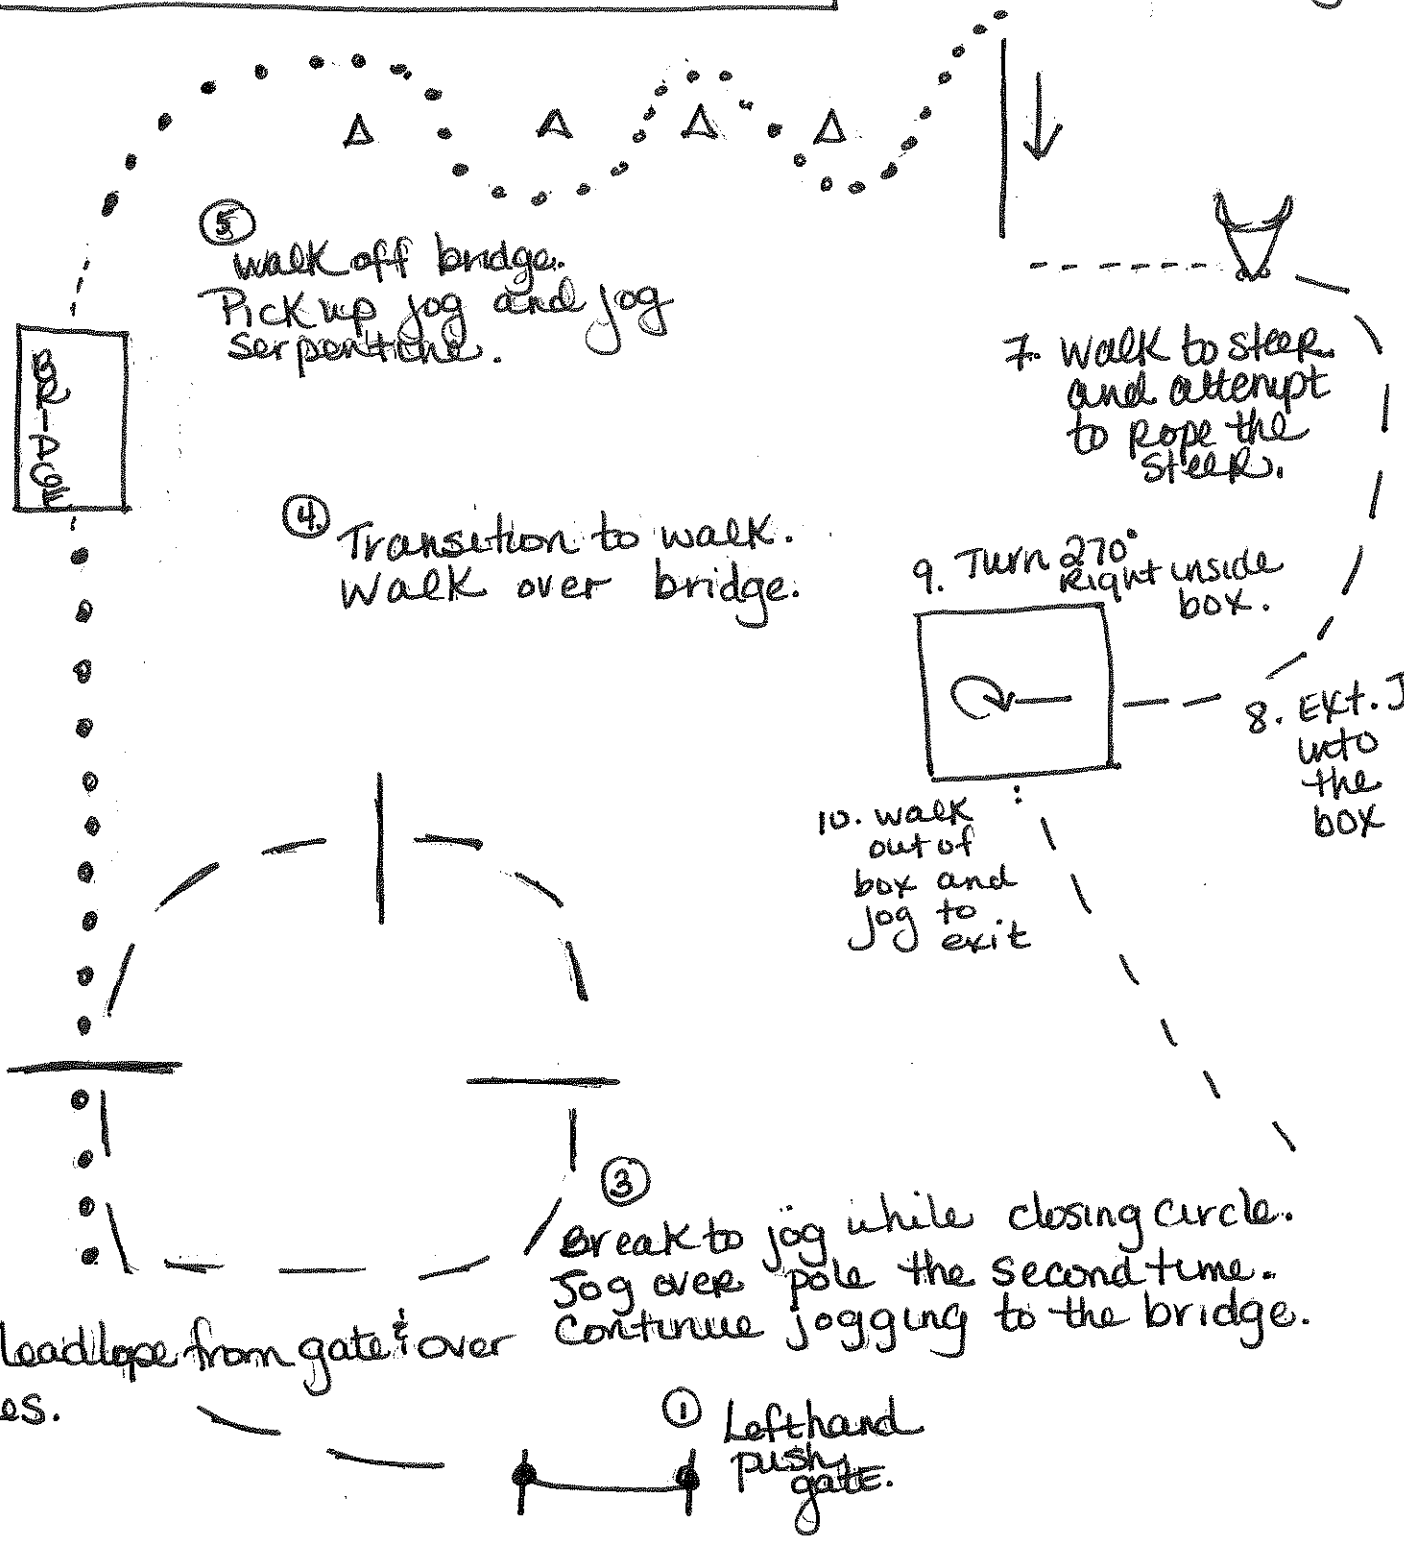 ⑤
walk off bridge.
Pick up jog and jog
serpentine.
BRIDGE
7. Walk to steer
and attempt
to rope the
steer.
④ Transition to walk.
Walk over bridge.
9. Turn 270°
Right inside
box.
8. Ext. J
into
the
box
10. walk
out of
box and
jog to
exit
③
Break to jog while closing circle.
Jog over pole the second time.
Continue jogging to the bridge.
lead lope from gate & over
es.
① Lefthand
push
gate.